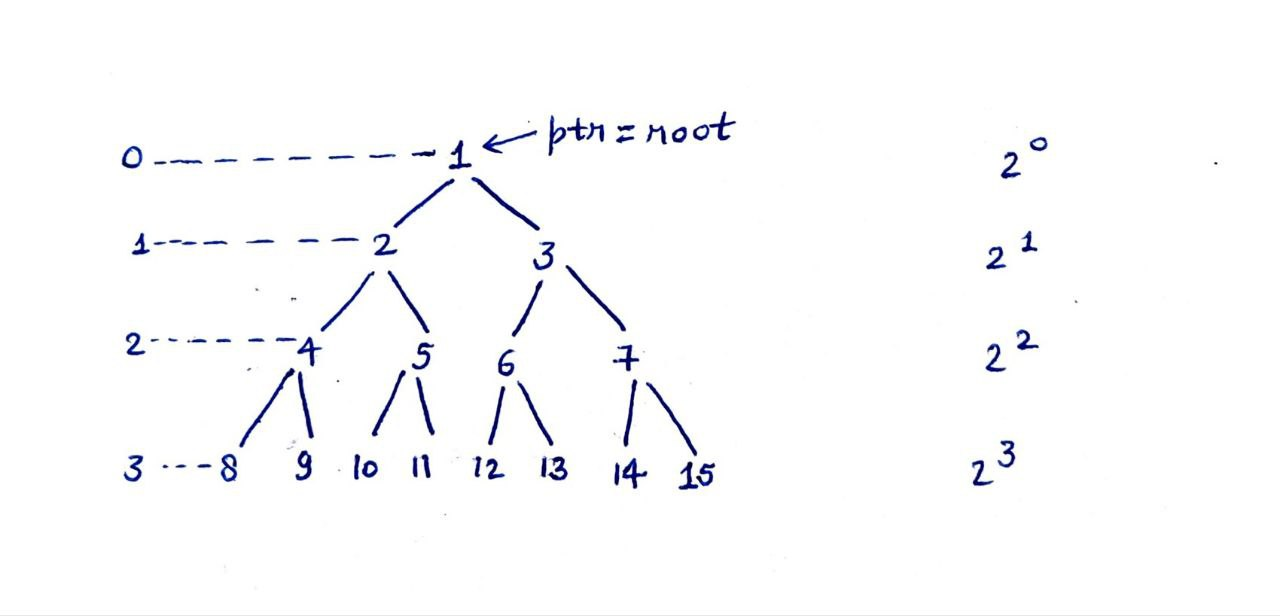 0 1 ptr = root 2^0
1 2 3 2^1
2 4 5 6 7 2^2
3 8 9 10 11 12 13 14 15 2^3